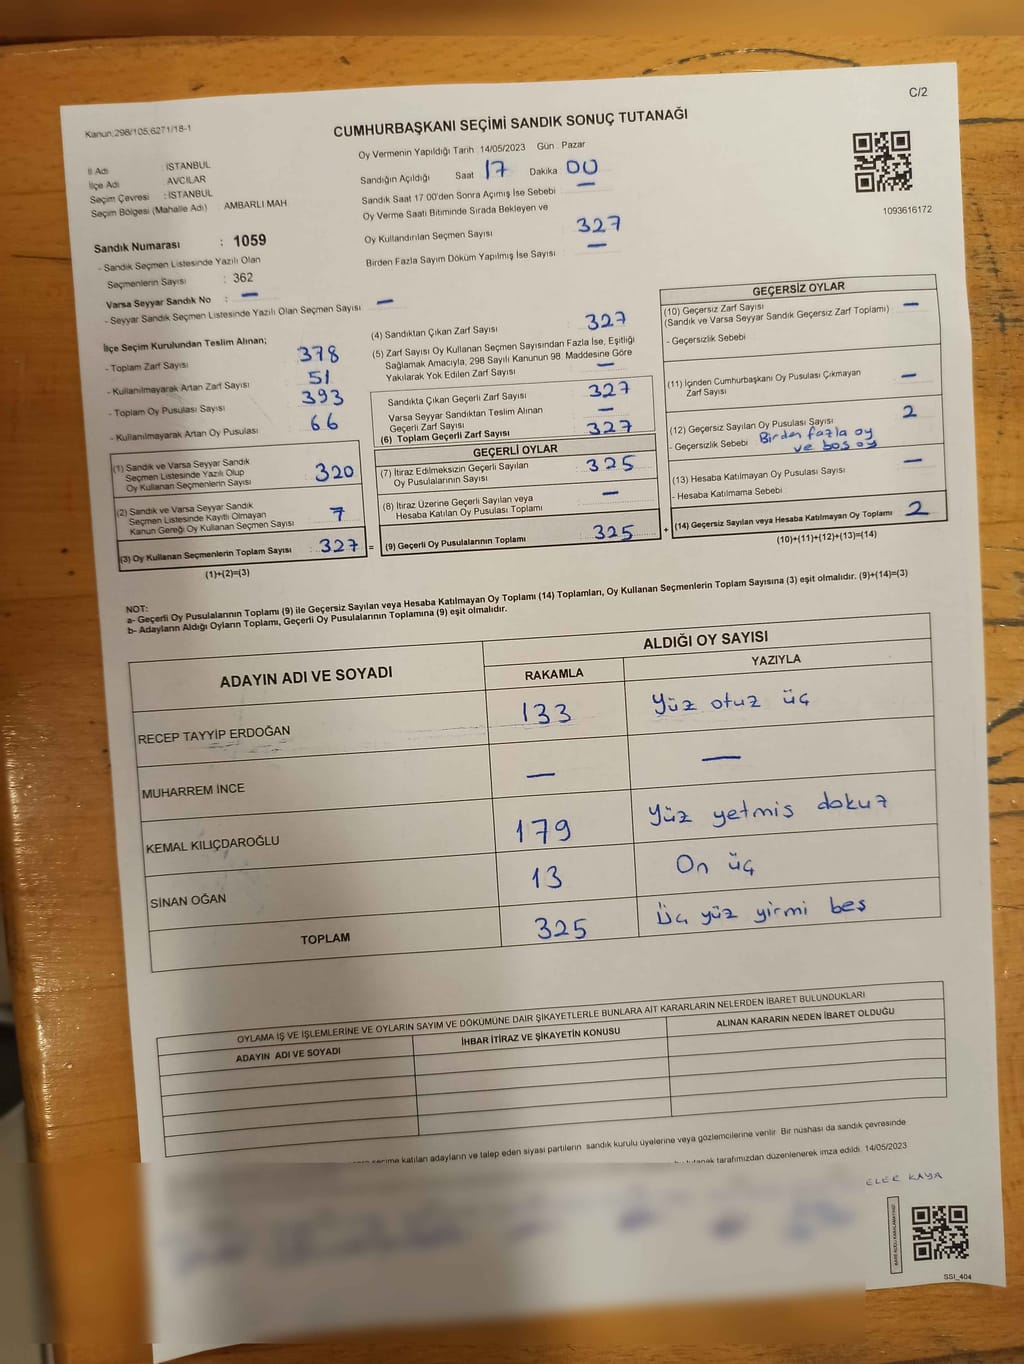 C/2
Kanun:298/105,6271/18-1
CUMHURBAŞKANI SEÇİMİ SANDIK SONUÇ TUTANAĞI
İl Adı : İSTANBUL
İlçe Adı : AVCILAR
Seçim Çevresi : İSTANBUL
Seçim Bölgesi (Mahalle Adı) : AMBARLI MAH
Oy Vermenin Yapıldığı Tarih 14/05/2023 Gün . Pazar
Sandığın Açıldığı Saat 17 Dakika 00
Sandık Saat 17 00'den Sonra Açımış İse Sebebi —
Oy Verme Saati Bitiminde Sırada Bekleyen ve
Oy Kullandırılan Seçmen Sayısı 327
Birden Fazla Sayım Döküm Yapılmış İse Sayısı —
1093616172
Sandık Numarası : 1059
- Sandık Seçmen Listesinde Yazılı Olan
Seçmenlerin Sayısı : 362
Varsa Seyyar Sandık No : —
- Seyyar Sandık Seçmen Listesinde Yazılı Olan Seçmen Sayısı —
İlçe Seçim Kurulundan Teslim Alınan;
- Toplam Zarf Sayısı 378
- Kullanılmayarak Artan Zarf Sayısı 51
- Toplam Oy Pusulası Sayısı 393
- Kullanılmayarak Artan Oy Pusulası 66
(1) Sandık ve Varsa Seyyar Sandık
Seçmen Listesinde Yazılı Olup
Oy Kullanan Seçmenlerin Sayısı 320
(2) Sandık ve Varsa Seyyar Sandık
Seçmen Listesinde Kayıtlı Olmayan
Kanun Gereği Oy Kullanan Seçmen Sayısı 7
(3) Oy Kullanan Seçmenlerin Toplam Sayısı : 327 =
(1)+(2)=(3)
(4) Sandıktan Çıkan Zarf Sayısı 327
(5) Zarf Sayısı Oy Kullanan Seçmen Sayısından Fazla İse, Eşitliği
Sağlamak Amacıyla, 298 Sayılı Kanunun 98. Maddesine Göre
Yakılarak Yok Edilen Zarf Sayısı —
Sandıkta Çıkan Geçerli Zarf Sayısı 327
Varsa Seyyar Sandıktan Teslim Alınan
Geçerli Zarf Sayısı —
(6) Toplam Geçerli Zarf Sayısı 327
GEÇERLİ OYLAR
(7) İtiraz Edilmeksizin Geçerli Sayılan
Oy Pusulalarının Sayısı 325
(8) İtiraz Üzerine Geçerli Sayılan veya
Hesaba Katılan Oy Pusulası Toplamı —
(9) Geçerli Oy Pusulalarının Toplamı 325 +
GEÇERSİZ OYLAR
(10) Geçersiz Zarf Sayısı —
(Sandık ve Varsa Seyyar Sandık Geçersiz Zarf Toplamı)
- Geçersizlik Sebebi
(11) İçinden Cumhurbaşkanı Oy Pusulası Çıkmayan
Zarf Sayısı —
(12) Geçersiz Sayılan Oy Pusulası Sayısı 2
- Geçersizlik Sebebi Birden fazla oy
ve boş oy
(13) Hesaba Katılmayan Oy Pusulası Sayısı —
- Hesaba Katılmama Sebebi
(14) Geçersiz Sayılan veya Hesaba Katılmayan Oy Toplamı 2
(10)+(11)+(12)+(13)=(14)
NOT:
a- Geçerli Oy Pusulalarının Toplamı (9) ile Geçersiz Sayılan veya Hesaba Katılmayan Oy Toplamı (14) Toplamları, Oy Kullanan Seçmenlerin Toplam Sayısına (3) eşit olmalıdır. (9)+(14)=(3)
b- Adayların Aldığı Oyların Toplamı, Geçerli Oy Pusulalarının Toplamına (9) eşit olmalıdır.
ADAYIN ADI VE SOYADI ALDIĞI OY SAYISI
RAKAMLA YAZIYLA
RECEP TAYYİP ERDOĞAN 133 Yüz otuz üç
MUHARREM İNCE — —
KEMAL KILIÇDAROĞLU 179 Yüz yetmis dokuz
SİNAN OĞAN 13 On üç
TOPLAM 325 Üç yüz yirmi bes
OYLAMA İŞ VE İŞLEMLERİNE VE OYLARIN SAYIM VE DÖKÜMÜNE DAİR ŞİKAYETLERLE BUNLARA AİT KARARLARIN NELERDEN İBARET BULUNDUKLARI
ADAYIN ADI VE SOYADI İHBAR İTİRAZ VE ŞİKAYETİN KONUSU ALINAN KARARIN NEDEN İBARET OLDUĞU
seçime katılan adayların ve talep eden siyasi partilerin sandık kurulu üyelerine veya gözlemcilerine verilir Bir nüshası da sandık çevresinde
tutanak tarafımızdan düzenlenerek imza edildi. 14/05/2023
KAYA
SSI_404